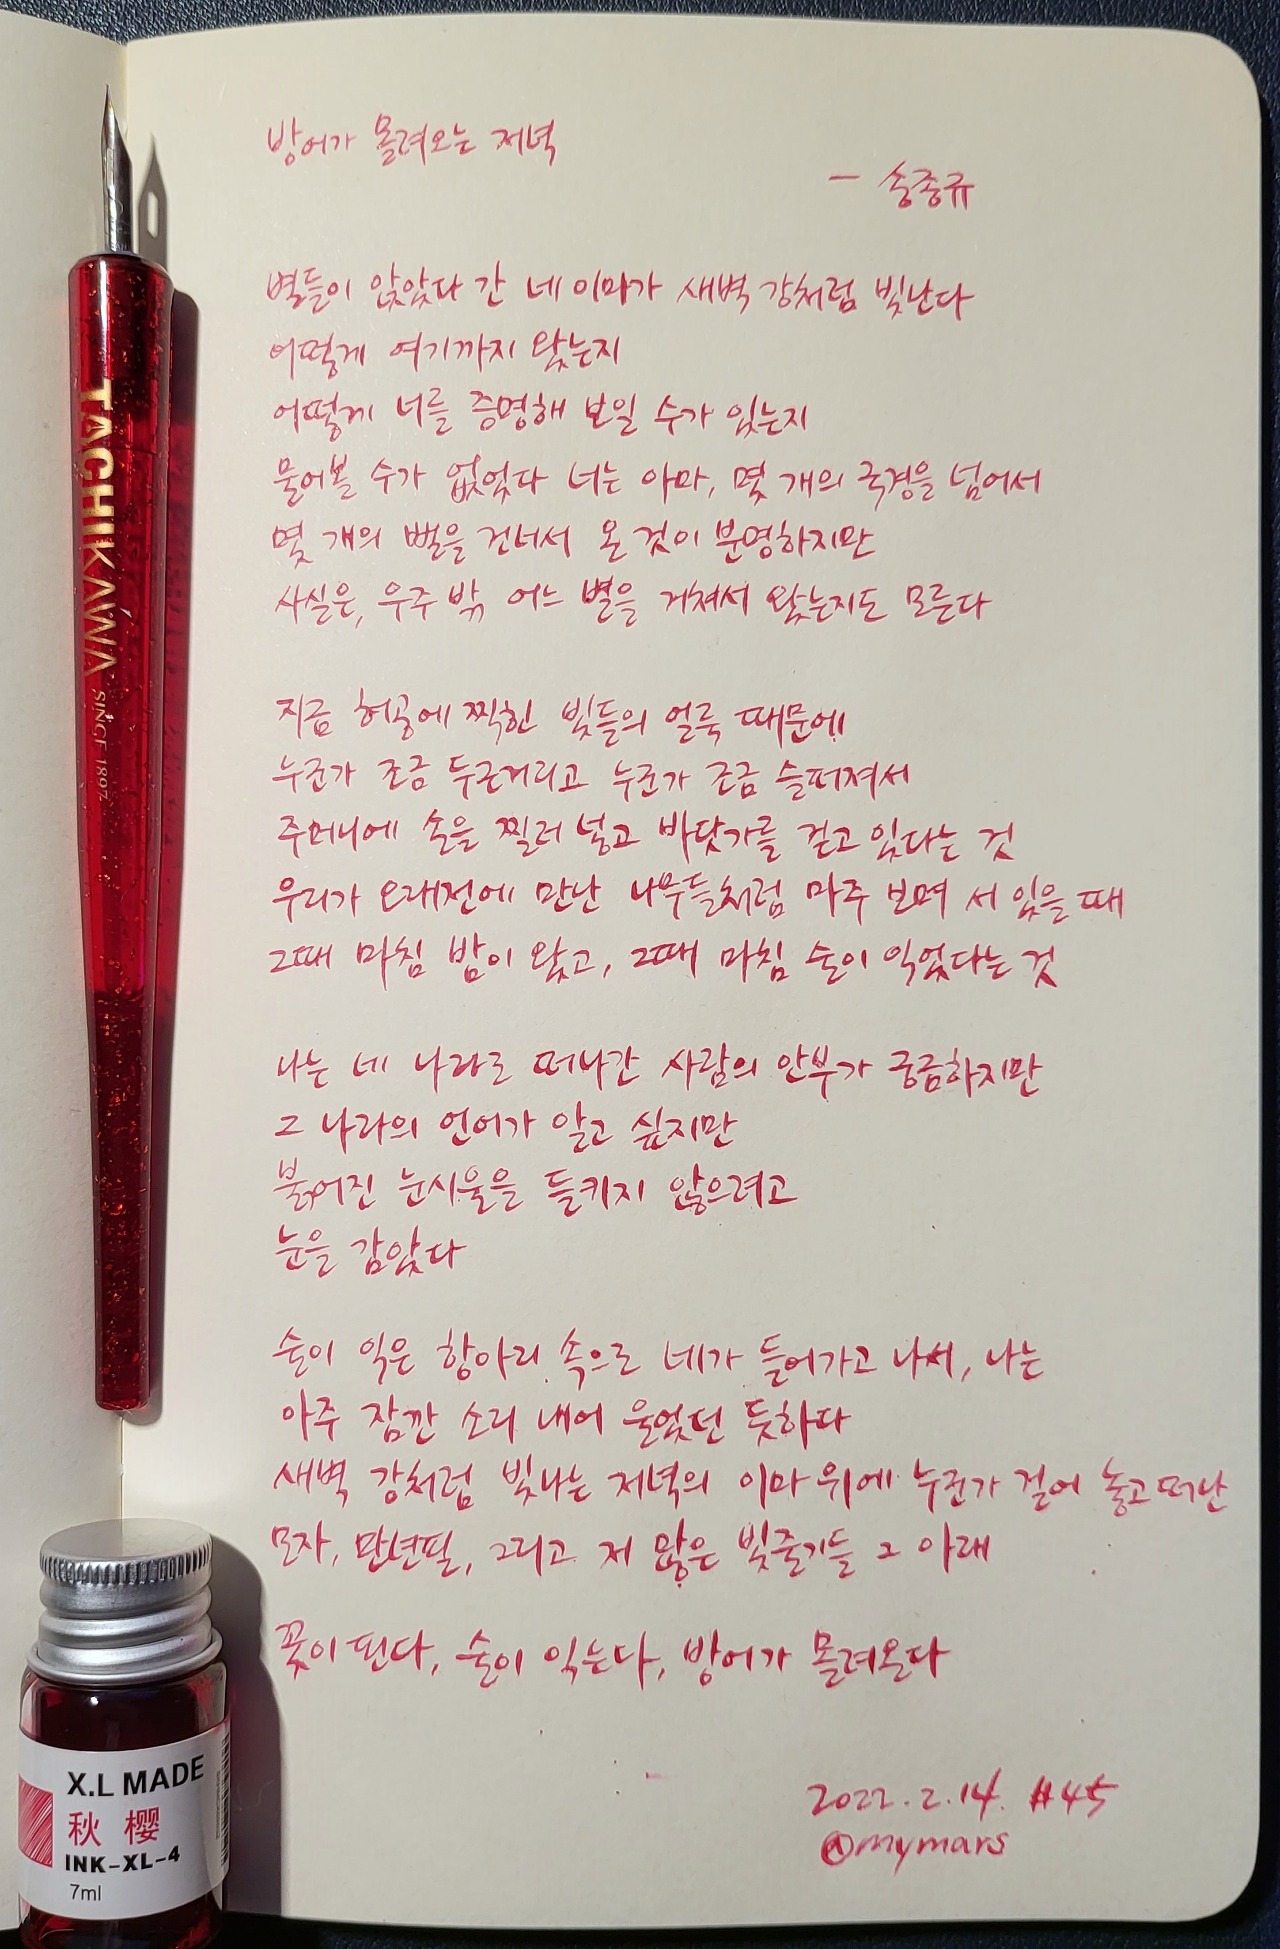 방어가 몰려오는 저녁
- 송종규
별들이 앉았다 간 네 이마가 새벽 강처럼 빛난다
어떻게 여기까지 왔는지
어떻게 너를 증명해 보일 수가 있는지
물어볼 수가 없었다 너는 아마, 몇 개의 국경을 넘어서
몇 개의 뻘을 건너서 온 것이 분명하지만
사실은, 우주 밖 어느 별을 거쳐서 왔는지도 모른다
지금 허공에 찍힌 빛들의 얼룩 때문에
누군가 조금 두근거리고 누군가 조금 슬퍼져서
주머니에 손을 찔러 넣고 바닷가를 걷고 있다는 것
우리가 오래전에 만난 나무들처럼 마주 보며 서 있을 때
그때 마침 밤이 왔고, 그때 마침 술이 익었다는 것
나는 네 나라로 떠나간 사람의 안부가 궁금하지만
그 나라의 언어가 알고 싶지만
붉어진 눈시울을 들키지 않으려고
눈을 감았다
술이 익은 항아리 속으로 네가 들어가고 나서, 나는
아주 잠깐 소리 내어 울었던 듯하다
새벽 강처럼 빛나는 저녁의 이마 위에 누군가 걸어 놓고 떠난
모자, 만년필, 그리고 저 많은 빛줄기들 그 아래
꽃이 핀다, 술이 익는다, 방어가 몰려온다
2022.2.14. #45
@mymars
TACHIKAWA SINCE 1897
X.L MADE
秋 樱
INK-XL-4
7ml